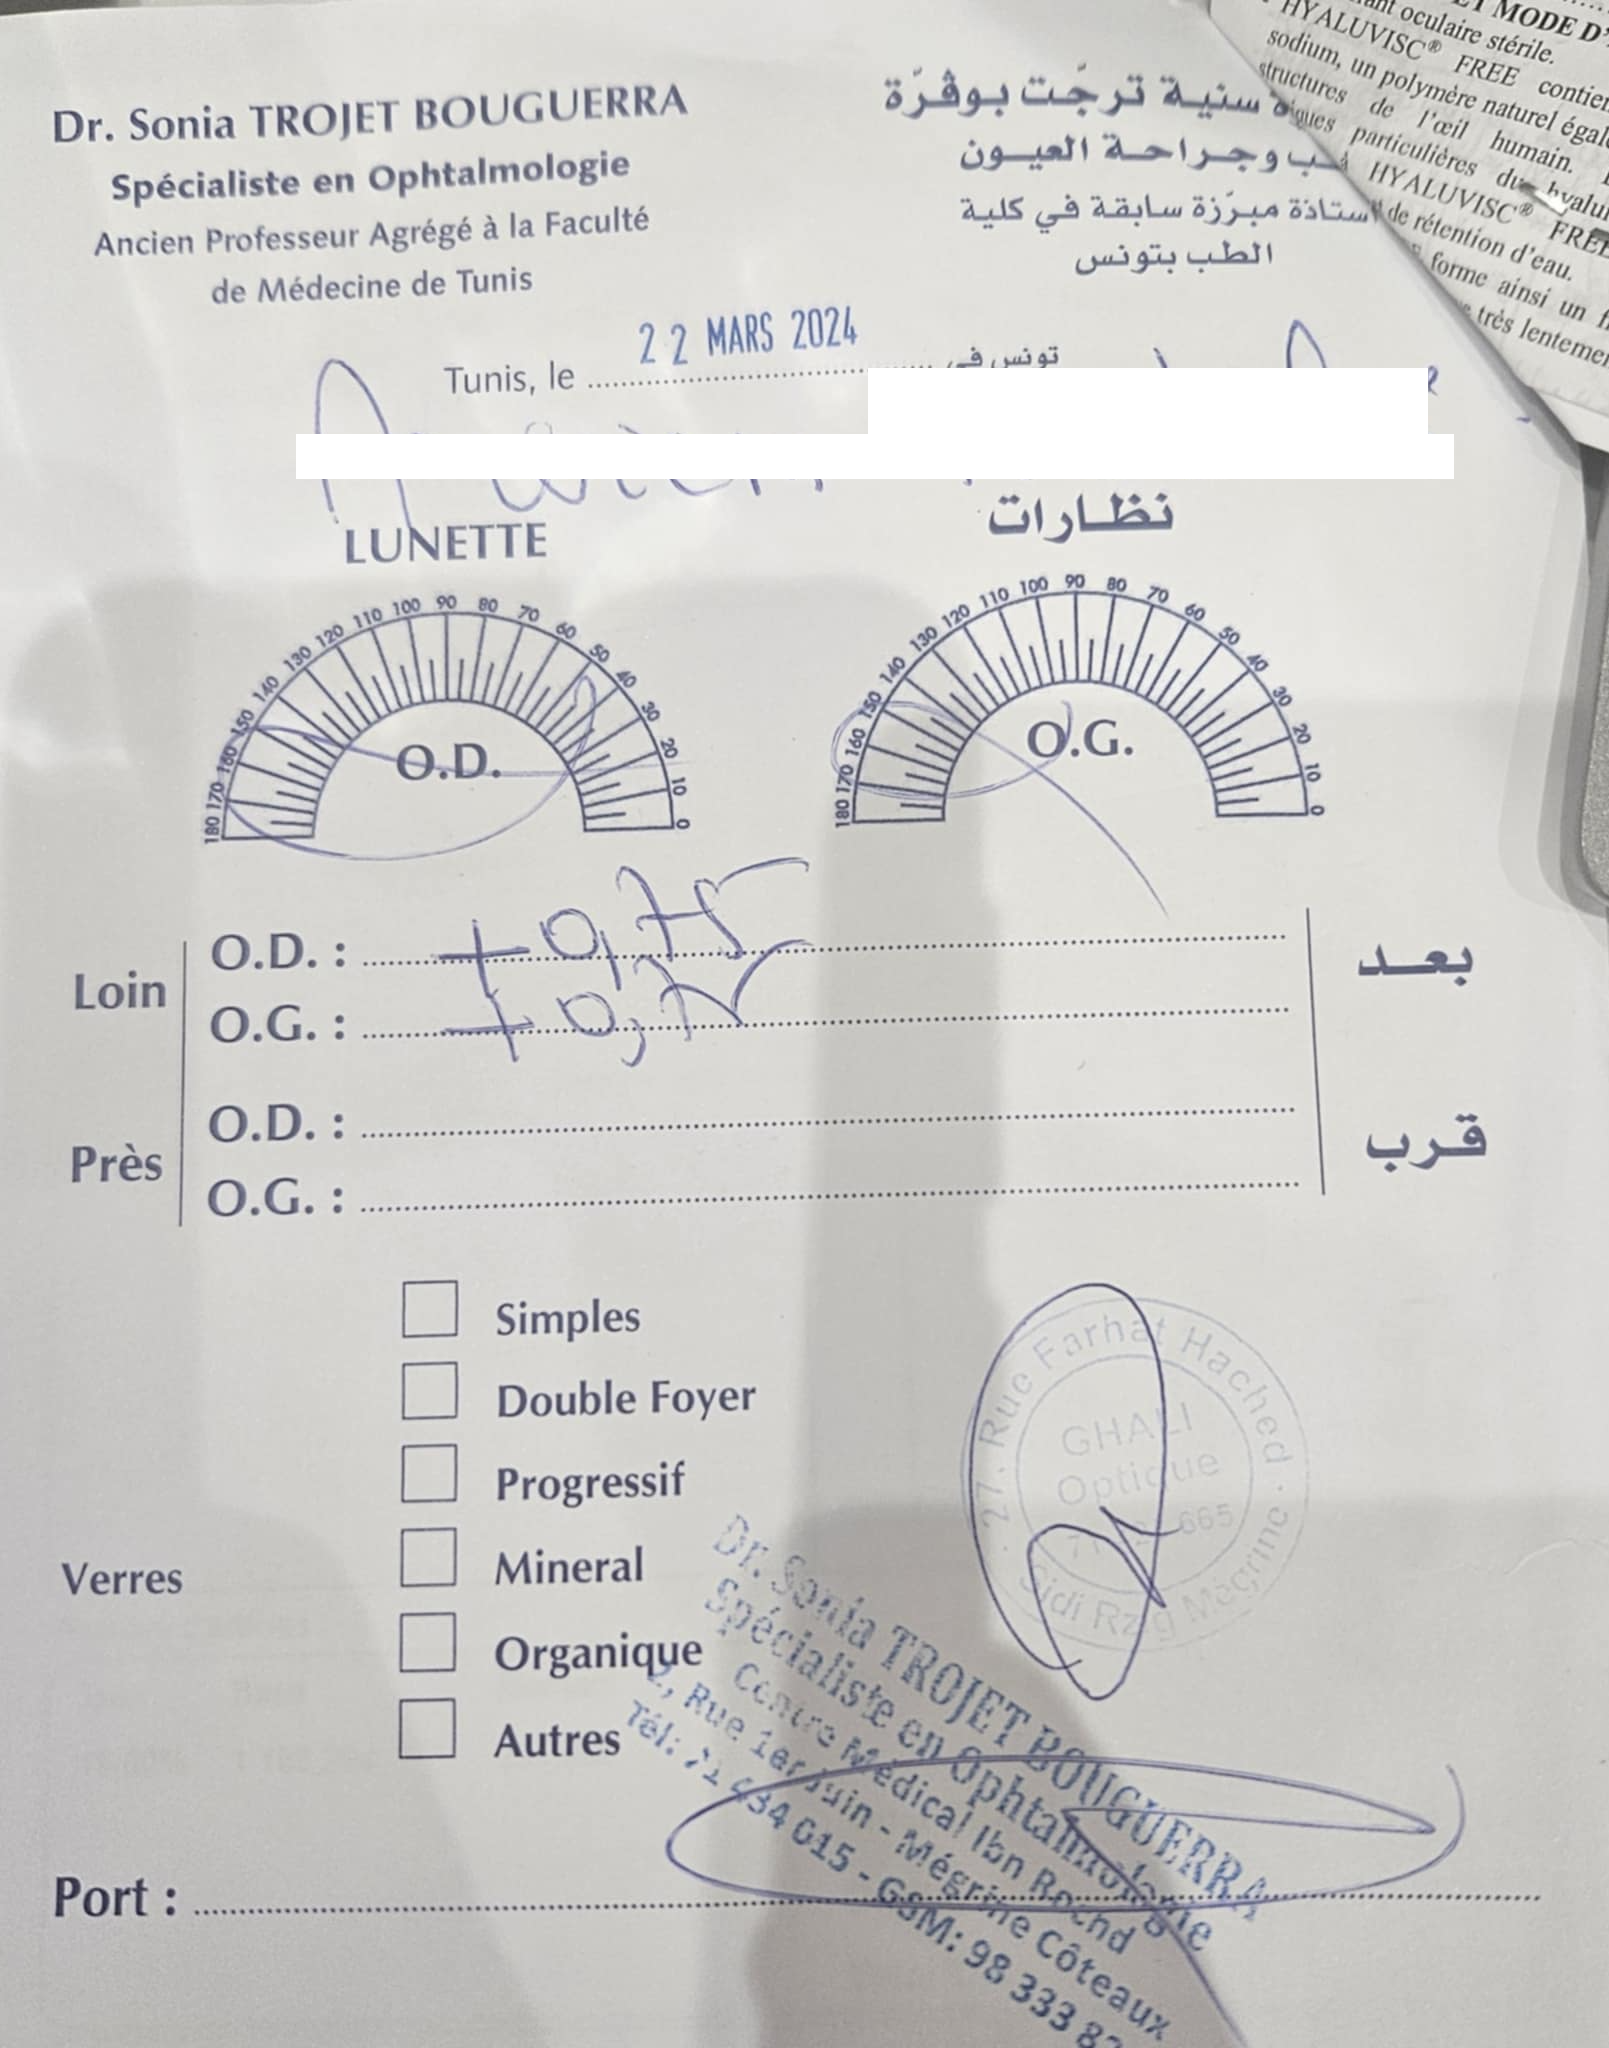 Dr. Sonia TROJET BOUGUERRA
Spécialiste en Ophtalmologie
Ancien Professeur Agrégé à la Faculté
de Médecine de Tunis
سنية ترجّت بوڨرّة
طب وجراحة العيون
أستاذة مبرّزة سابقة في كلية
الطب بتونس
ET MODE D'
oculaire stérile.
HYALUVISC® FREE contien
sodium, un polymère naturel égale
structures de l'œil humain.
particulières du hyalu
HYALUVISC® FREE
de rétention d'eau.
forme ainsi un fi
très lentemen
Tunis, le 22 MARS 2024 تونس في
LUNETTE نظارات
180 170 160 150 140 130 120 110 100 90 80 70 60 50 40 30 20 10 0
O.D.
180 170 160 150 140 130 120 110 100 90 80 70 60 50 40 30 20 10 0
O.G.
Loin
O.D. : +0,75
O.G. : +0,75
بعد
Près
O.D. :
O.G. :
قرب
Verres
Simples
Double Foyer
Progressif
Mineral
Organique
Autres
27. Rue Farhat Hached
GHALI
Optique
665
Sidi Rzig Mégrine
Dr. Sonia TROJET BOUGUERRA
Spécialiste en Ophtalmologie
Centre Médical Ibn Rochd
2, Rue 1er Juin - Mégrine Côteaux
Tél: 71 434 015 - GSM: 98 333 82
Port :